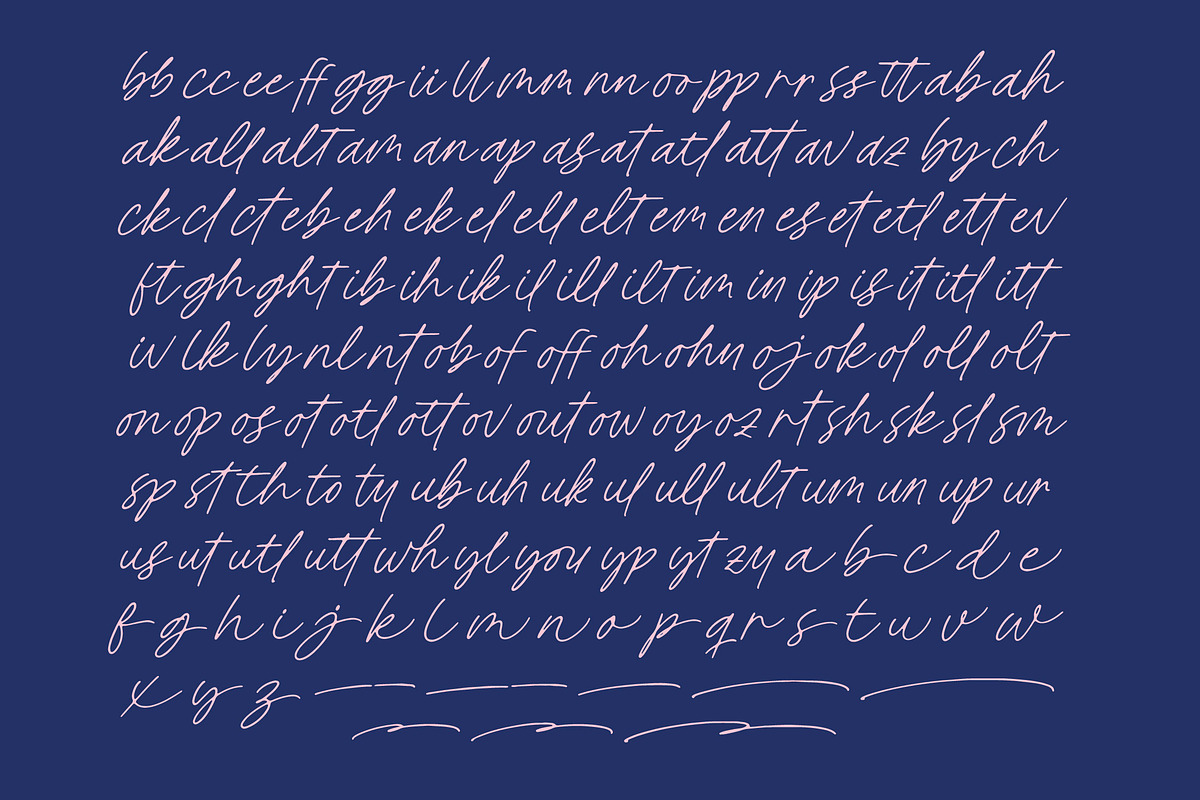 bb cc ee ff gg ii ll mm nn oo pp rr ss tt ab ah
ak all alt am an ap as at atl att av az by ch
ck cl ct eb eh ek el ell elt em en es et etl ett ev
ft gh ght ib ih ik il ill ilt im in ip is it itl itt
iv lk ly nl nt ob of off oh ohn oj ok ol oll olt
on op os ot otl ott ov out ow oy oz rt sh sk sl sm
sp st th to ty ub uh uk ul ull ult um un up ur
us ut utl utt wh yl you yp yt zy a b c d e
f g h i j k l m n o p q r s t u v w
x y z